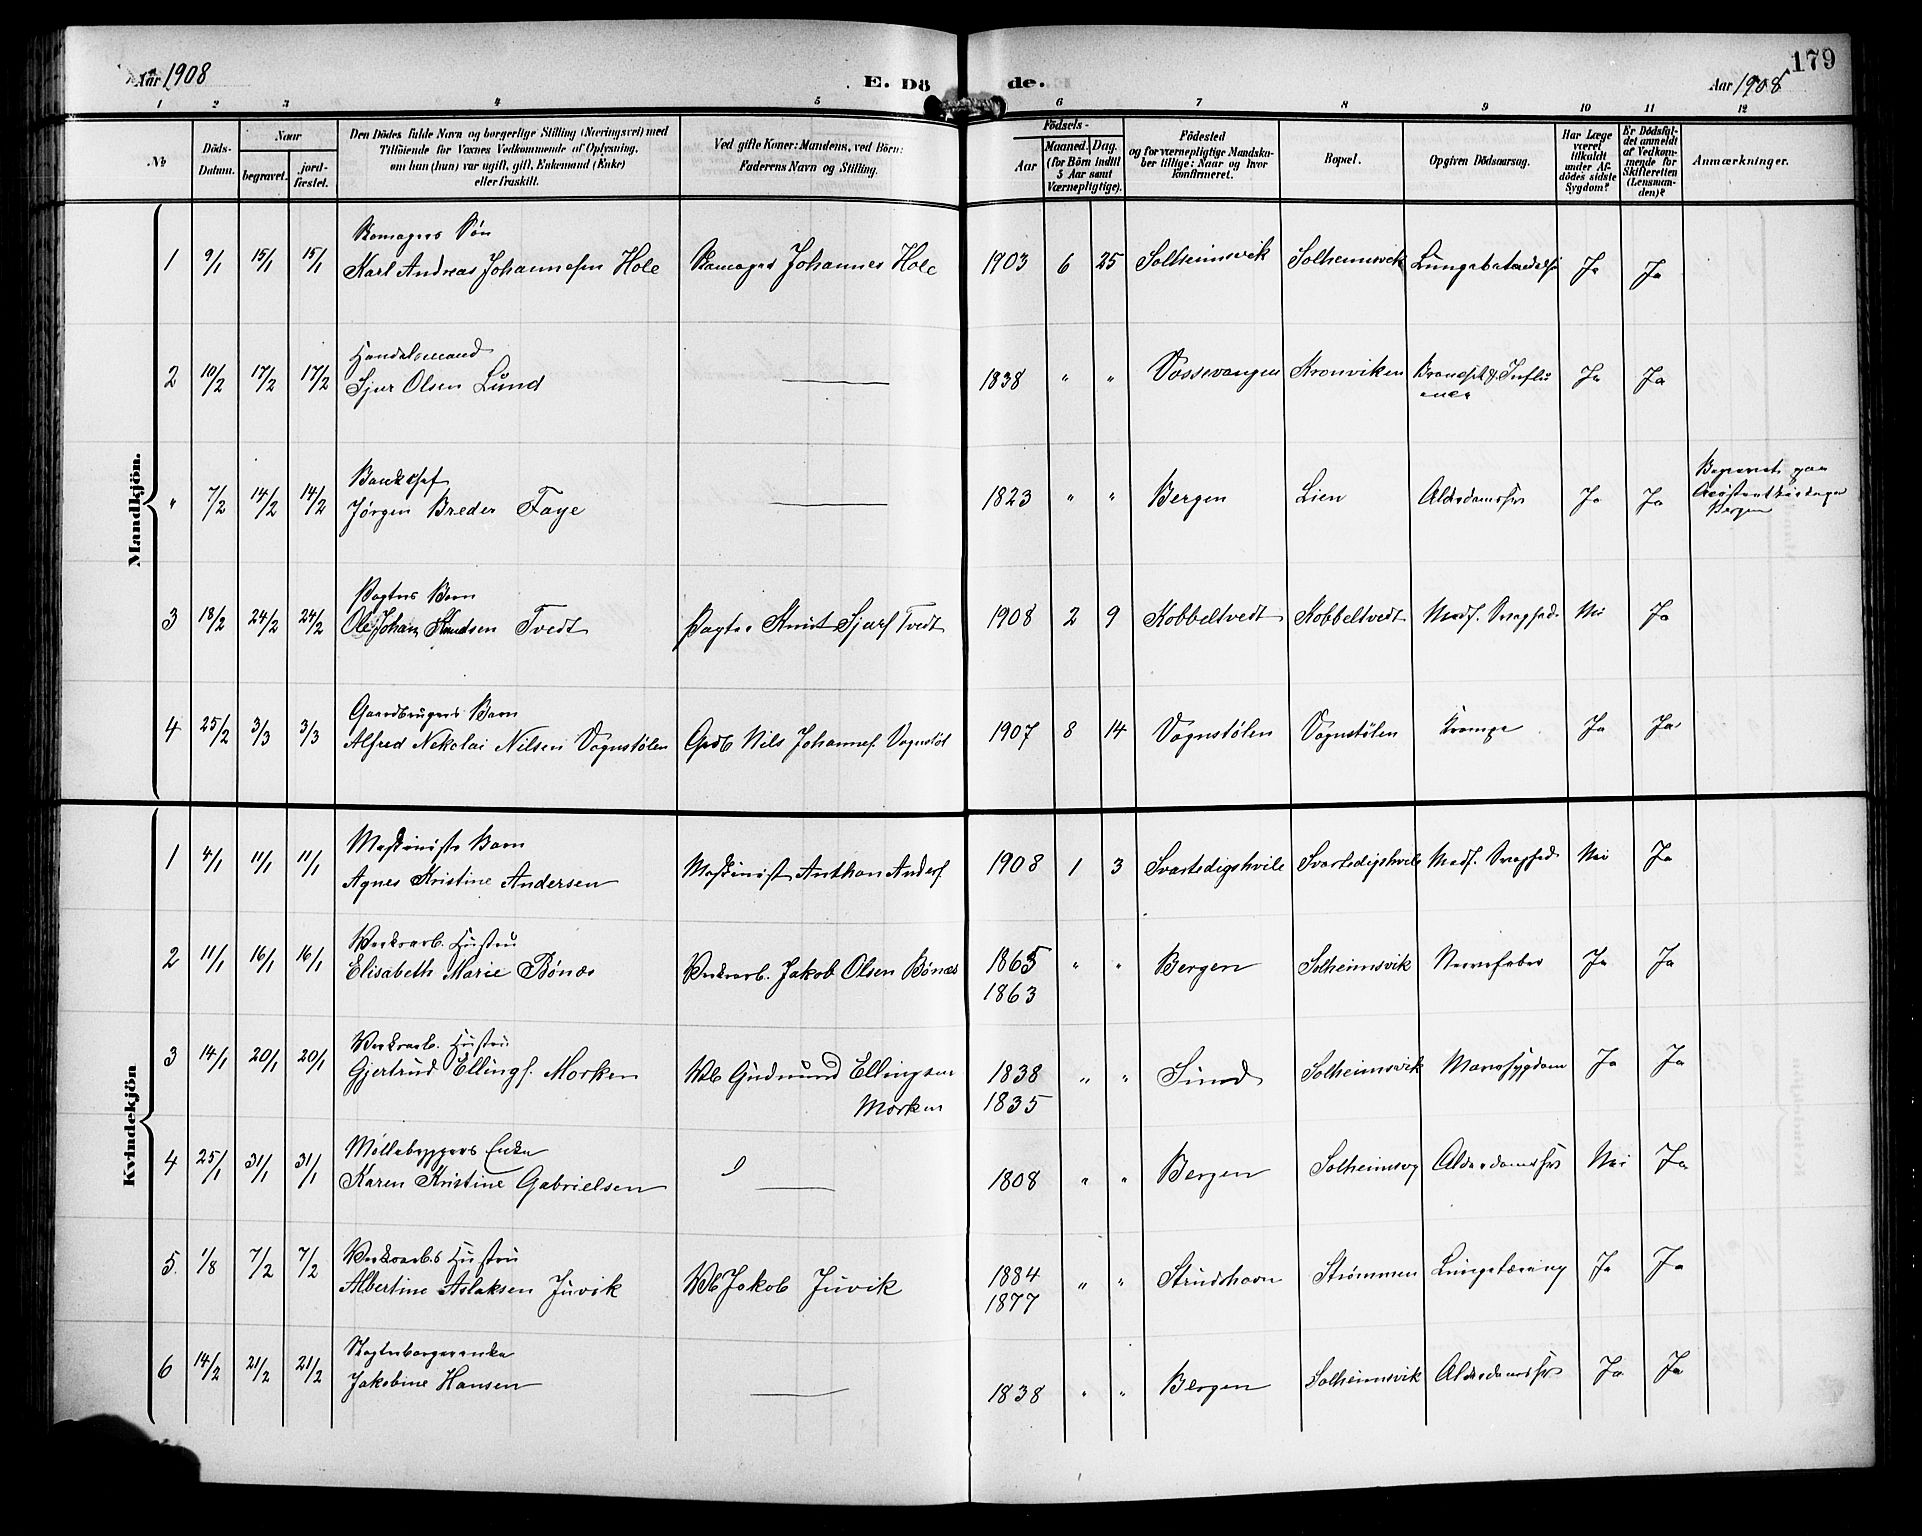 179
Aar 1908
E. Dö de.
Aar 1908
1 2 3 4 5 6 7 8 9 10 11 12
No
Döds-Datum.
Naar
begravet.
jord-fæstet.
Den Dödes fulde Navn og borgerlige Stilling (Næringsvei) med
Tilföiende for Voxnes Vedkommende af Oplysning,
om han (hun) var ugift, gift, Enkemand (Enke)
eller fraskilt.
Ved gifte Koner: Mandens, ved Börn:
Faderens Navn og Stilling.
Födsels-
Aar
Maaned.
Dag.
(for Börn indtil
5 Aar samt
Værnepligtige).
Födested
og for værnepligtige Mandska-
ber tillige: Naar og hvor
konfirmeret.
Bopæl.
Opgiven Dödsaarsag.
Har Læge
været
tilkaldt
under Af-
dödes sidste
Sygdom?
Er Dödsfal-
det anmeldt
af Vedkom-
mende for
Skifteretten
(Lensman-
den)?
Anmærkninger.
Mandkjön.
Søn
1 9/1 15/1 15/1 Karl Andreas Johannesen Hole Johannes Hole 1903 6 25 Solheimsvik Solheimsvik Lungebetændelse Ja Ja
Handelsmand
2 10/2 17/2 17/2 Sjur Olsen Lund — 1838 " " Vossevangen Kronviken Ja Ja
Bankchef
" 7/2 14/2 14/2 Jørgen Breder Faye — 1823 " " Bergen Lien Alderdomssvs Ja Ja
Begravet paa
Assistentkirkegr
Bergen
Pagters Barn
3 18/2 24/2 24/2 Ole Johan Knudsen Tvedt Pagter Knut Sjurs. Tvedt 1908 2 9 Kobbeltvedt Kobbeltvedt Medf. Svaghed. Nei Ja
Gaardbrugers Barn
4 25/2 3/3 3/3 Alfred Nekolai Nilsen Vognstølen Grdb Nils Johannes. Vognstøl 1907 8 14 Vognstølen Vognstølen Krampe Ja Ja
Kvindekjön
Maskinists Barn
1 4/1 11/1 11/1 Agnes Kristine Andersen Maskinist Anthon Anders 1908 1 3 Svartedigshvile Svartedigshvile Medf. Svaghed Nei Ja
Verksarb. Hustru
2 11/1 16/1 16/1 Elisabeth Marie Bønæs Verksarb. Jakob Olsen Bønæs 1865 " " Bergen Solheimsvik Nervefeber Ja Ja
1863
Verksarb. Hustru
3 14/1 20/1 20/1 Gjertrud Ellings. Morken Vb Gudmund Ellingsen 1838 " " Sund Solheimsvik Mavesygdom Ja Ja
Morken 1835
Møllebyggers Enke
4 25/1 31/1 31/1 Karen Kristine Gabrielsen — 1808 " " Bergen Solheimsv Alderdomssvs Nei Ja
Verksarbs Hustru
5. 1/8 7/2 7/2 Albertine Aslaksen Juvik Vb Jakob Juvik 1884 " " Strudshavn Strømmen Lungetæring Ja Ja
1877
6 14/2 21/2 21/2 Jakobine Hansen — 1838 " " Bergen Solheimsvik Alderdomssvs Ja Ja